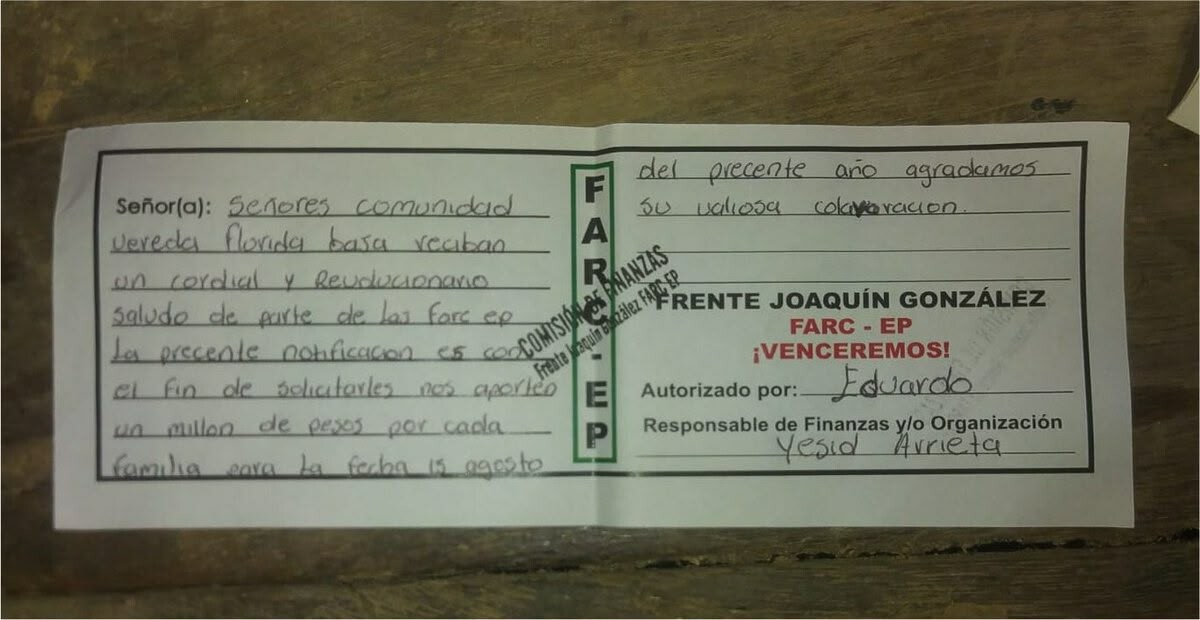 Señor(a): Señores comunidad
vereda florida baja reciban
un cordial y Revolucionario
saludo de parte de las farc ep
La precente notificacion es con
el fin de solicitarles nos aporten
un millon de pesos por cada
familia para la fecha 15 agosto
FARC-EP
COMISIÓN DE FINANZAS
Frente Joaquín González FARC EP
del precente año agradamos
su valiosa colavoracion.
FRENTE JOAQUÍN GONZÁLEZ
FARC - EP
¡VENCEREMOS!
Autorizado por: Eduardo
Responsable de Finanzas y/o Organización
Yesid Arrieta